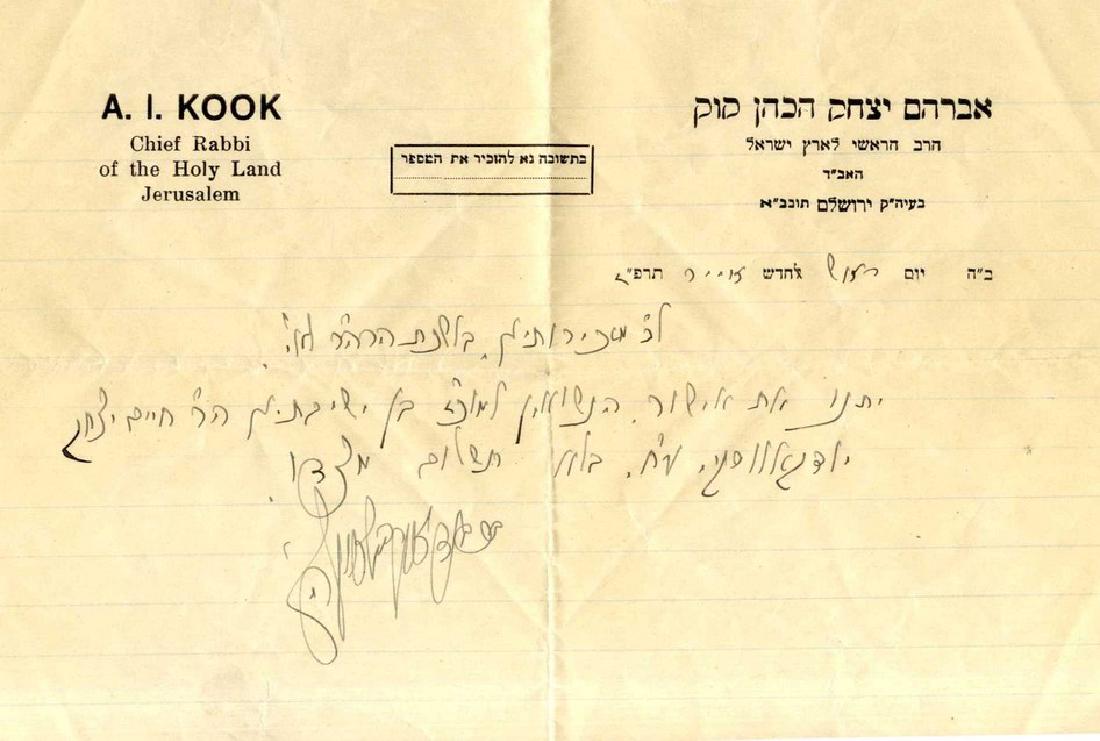 A. I. KOOK
Chief Rabbi
of the Holy Land
Jerusalem
בתשובה נא להזכיר את המספר
אברהם יצחק הכהן קוק
הרב הראשי לארץ ישראל
האב"ד
בעיה"ק ירושלם תובב"א
ב"ה יום לחדש אייר
לכ' מזכירותינו, בלשכת הרה"ר לא"י.
יתנו את אישור הנשואין למוכ"ז בן ישיבתינו הר' חיים יצחק
בלא תשלום מצדו.